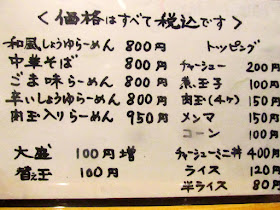 ＜価格はすべて税込です＞
和風しょうゆらーめん 800円
中華そば 800円
ごま味らーめん 800円
辛いしょうゆらーめん 800円
肉玉入りらーめん 950円
大盛 100円増
替え玉 100円
トッピング
チャーシュー 200円
煮玉子 100円
肉玉(4ヶ) 150円
メンマ 150円
コーン 100円
チャーシューミニ丼 400円
ライス 120円
半ライス 80円